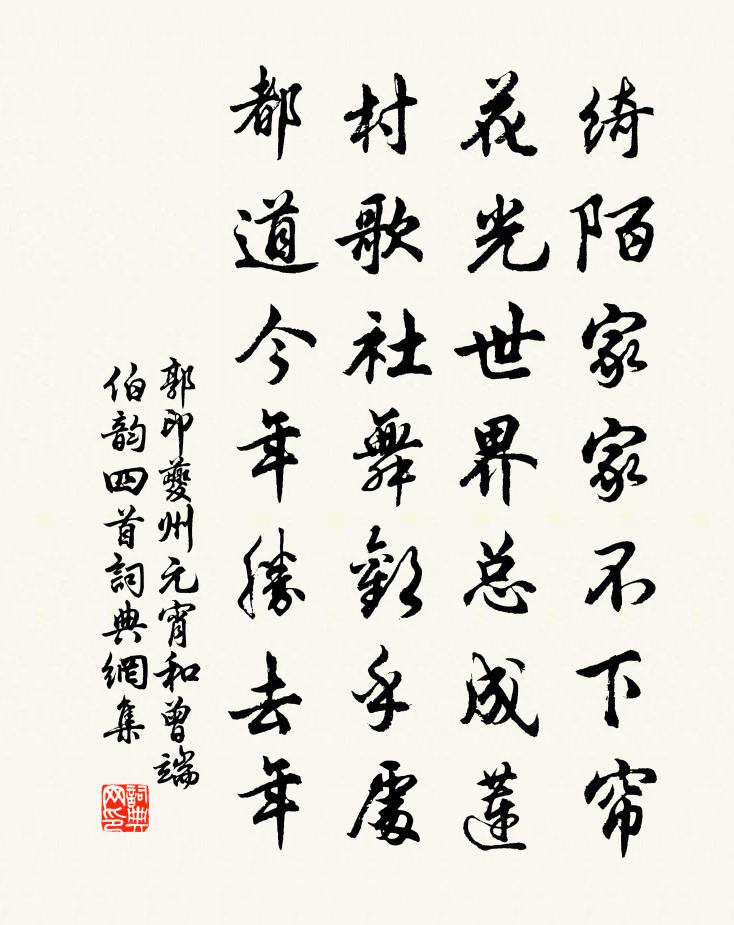 绮陌家家不下帘
花光世界总成莲
村歌社舞歡乎處
都道今年勝去年
郭印夔州元宵和曾端
伯韵四首詞典網集
詞典網印